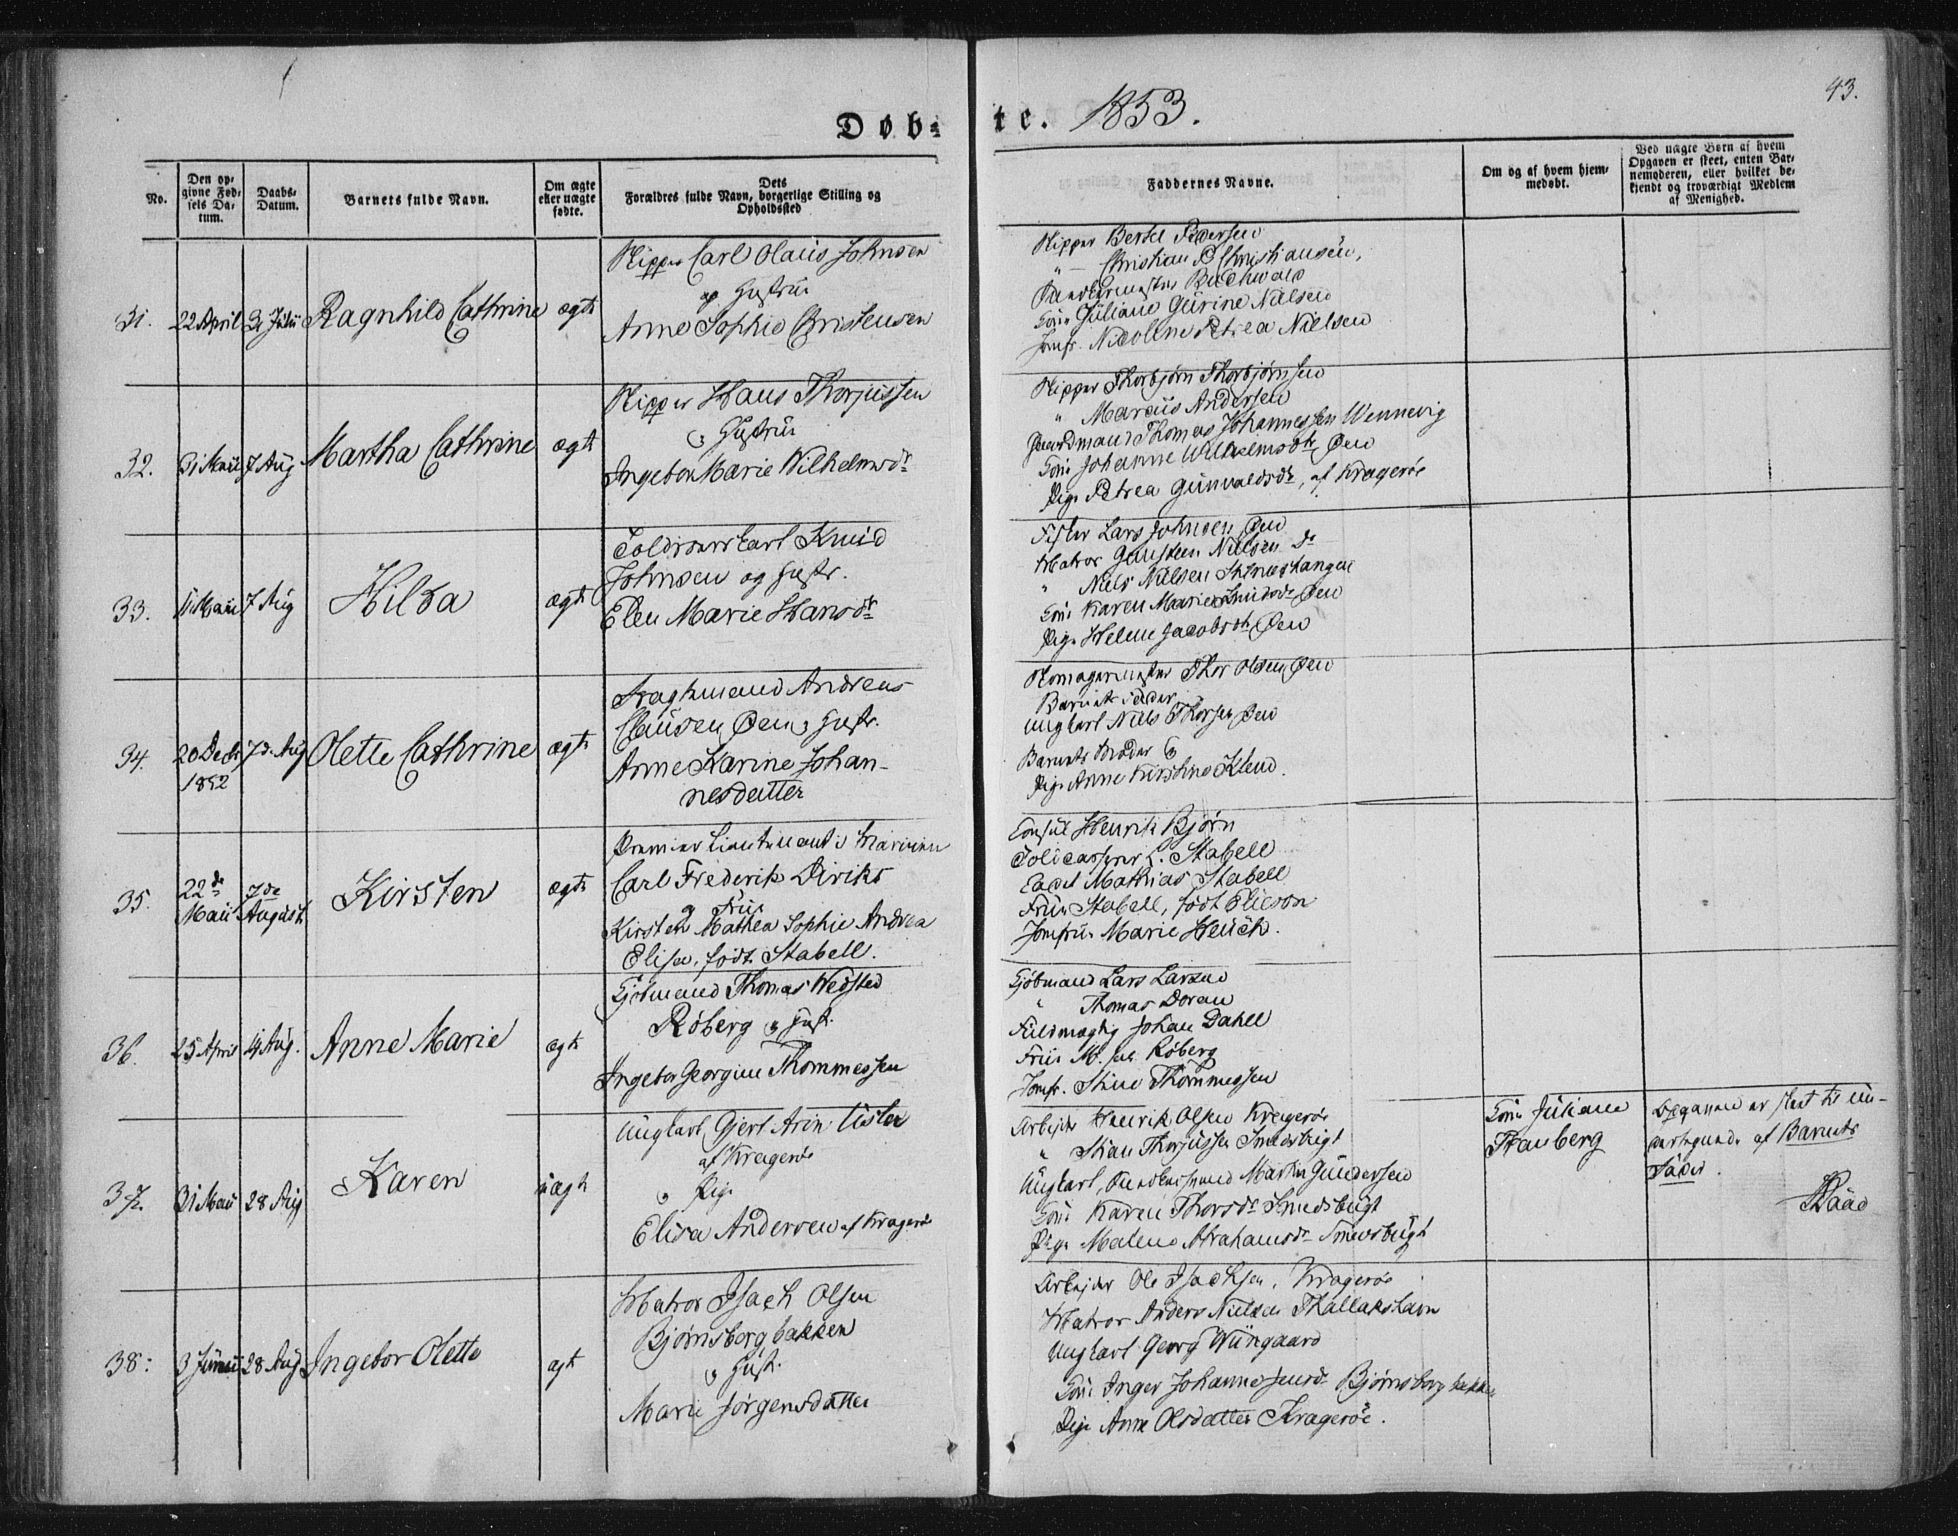 43.
Døb-te. 1853.
No.
Den opgivne Fødsels Datum.
Daabs-Datum.
Barnets fulde Navn.
Om ægte eller uægte fødte.
Dets Forældres fulde Navn, borgerlige Stilling og Opholdssted
Faddernes Navne.
Om og af hvem hjemmedøbt.
Ved uægte Børn af hvem Opgaven er skeet, enten Barnemoderen, eller hvilket bekjendt og troværdigt Medlem af Menighed.
31.
22 April
31 Juli
Ragnhild Cathrine
ægte
Skipper Carl Olaus Johnsen
og Hustrue
Anne Sophie Christensen
Skipper Bertel Pedersen
" — Christian P Christiansen,
Buchwald
Cone Juliane Gurine Nielsen
Jomfr. Nicoline Petrea Nielsen
32.
31 Maii
7 Aug
Martha Cathrine
ægte
Skipper Hans Thorjussen
og Hustrue
Ingebor Marie Wilhelmsdr
Skipper Thorbjørn Thorbjørnsen
" Marius Andersen
Gaardmand Thomas Johannessen Wennevig
Cone Johanne Wilhelmsdtr Øen
Pige Petrea Gunvaldsdr, af Kragerøe
33.
11 Maii
7 Aug
Hilda
ægte
Toldroerskarl Knud
Johnsen og Hustr.
Elen Marie Hansdtr
Fisker Lars Johnsen Øen
Matros Gunsteen Nielsen do
" Niels Nielsen Stenestangen
Cone Karen Marie Knudsdr Øen
Pige Helene Jacobsdtr Øen
34.
20 Decbr
1852
7de Aug
Olette Cathrine
ægte
Fragtemand Andreas
Clausen Øen og Hustr.
Anne Karine Johan-
nesdatter
Skomagermester Thor Olsen Øen
Barnets Fader
Ungkarl Niels Thorsen Øen
Barnets Moder og
Pige Anne Kirstine Klend.
35.
22de
Maii
7de
August
Kirsten
ægte
Premier Lieutenant i Marinen
Carl Frederik Diriks
og Frue
Kirsten Mathea Sophie Andrea
Elise, født Stabell.
Consul Henrik Bjørn
Toldcasserer L. Stabell
Cadet Mathias Stabell
Frue Stabell, født Elieson
Jomfrue Marie Heuch.
36.
25 April
4 Aug.
Anne Marie
ægte
Kjøbmand Thomas Wedsted
Røberg og Hust.
Ingebor Georgine Thommessen
Kjøbmand Lars Larsen
" Thomas Doran
Fuldmægtig Johan Dahll
Frue M. Røberg
Jomfr. Stine Thommessen
37.
31 Maii
28 Aug
Karen
uægte
Ungkarl Gjert Arin Lister
af Kragerøe
og Pige
Elisa Andersen af Kragerøe
Arbejder Henrik Olsen Kragerøe
" Stian Thorjussen Smedsbugt
Ungkarl, Martin Gundersen
Cone Karen Thorsdr Smedsbugt
Pige Malene Abrahamsdr Smedsbugt
Cone Juliane
Stanberg
Opgaven er skeet til un-
dertegnede af Barnets
Fader.
38.
3 Junii
28 Aug
Ingebor Olette
ægte
Matros Isach Olsen
Bjørnsbergbakken
og Hust.
Marie Jørgensdatter
Arbejder Ole Isachsen, Kragerøe
Matros Anders Nielsen Thallakshavn
Ungkarl Georg Wiingaard
Cone Inger Johannesensdr Bjørnsbergbakken
Pige Anne Olsdatter Kragerøe.